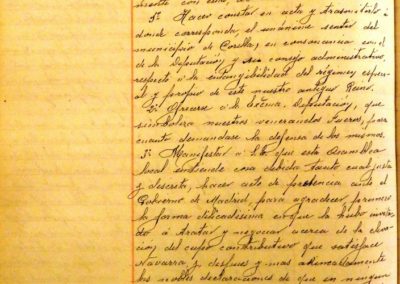 mente con esta, ac
1º Hacer constar en acta y trasmitirlo á
donde corresponda, el unánime sentir del
municipio de Corella, en consonancia con el
de la Diputación, y su consejo administrativo,
respecto á la intangibilidad del régimen, espe-
y propio de este nuestro antiguo Reino.
2º Ofrecerse á la Excma. Diputación, que
simboliza nuestros venerandos Fueros, para
cuanto demandase la defensa de los mismos.
3º Manifestar á que esta Asamblea
local entiende cosa debida tanto cual justa
y discreta, hacer acto de presencia ante el
Gobierno de Madrid, para agradecer primero
la forma delicadísima en que la hubo invita-
do á tratar y negociar acerca de la eleva-
ción, del cupo contributivo que satisface
Navarra; y despues y mas
las nobles declaraciones de que en ningun